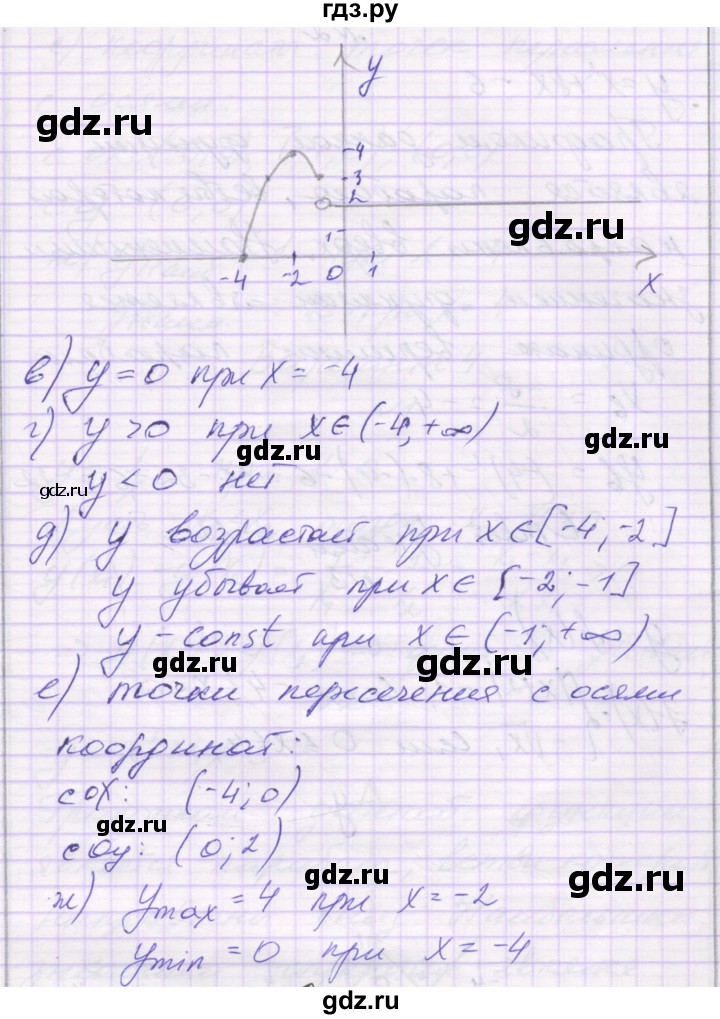 гдз.ру
y
gdz.ru
4
3
2
gdz.ru
1
-4 -2 0 1
x
в) y = 0 при x = -4
г) y > 0 при x ∈ (-4; +∞)
gdz.ru
gdz.ru
gdz.ru
y < 0 нет
д) y возрастает при x ∈ [-4; -2]
y убывает при x ∈ [-2; -1]
y - const при x ∈ (-1; +∞)
gdz.ru
gdz.ru
е) точки пересечения с осями
координат:
с ох: (-4; 0)
gdz.ru
с оу: (0; 2)
gdz.ru
gdz.ru
ж) y max = 4 при x = -2
y min = 0 при x = -4
gdz.ru
gdz.ru
gdz.ru